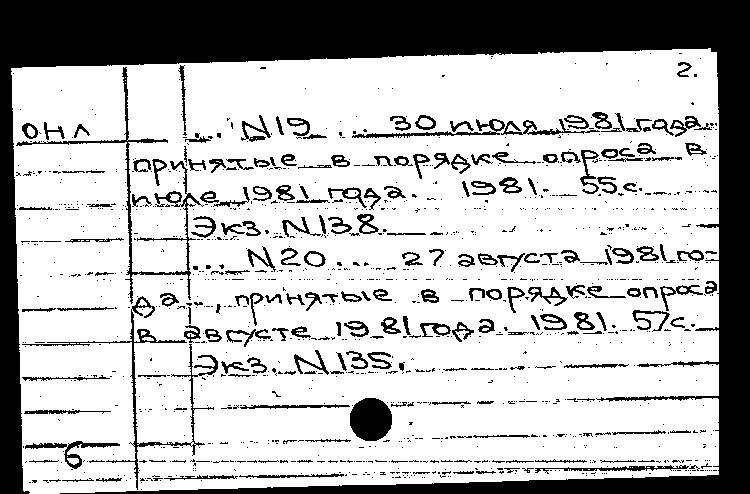 2.
ОНЛ ... N19 ... 30 июля 1981 года...
принятые в порядке опроса в
июле 1981 года. 1981. 55с.
Экз. N138.
... N20 ... 27 августа 1981 го-
да..., принятые в порядке опроса
в августе 1981 года. 1981. 57с.
Экз. N135.
6